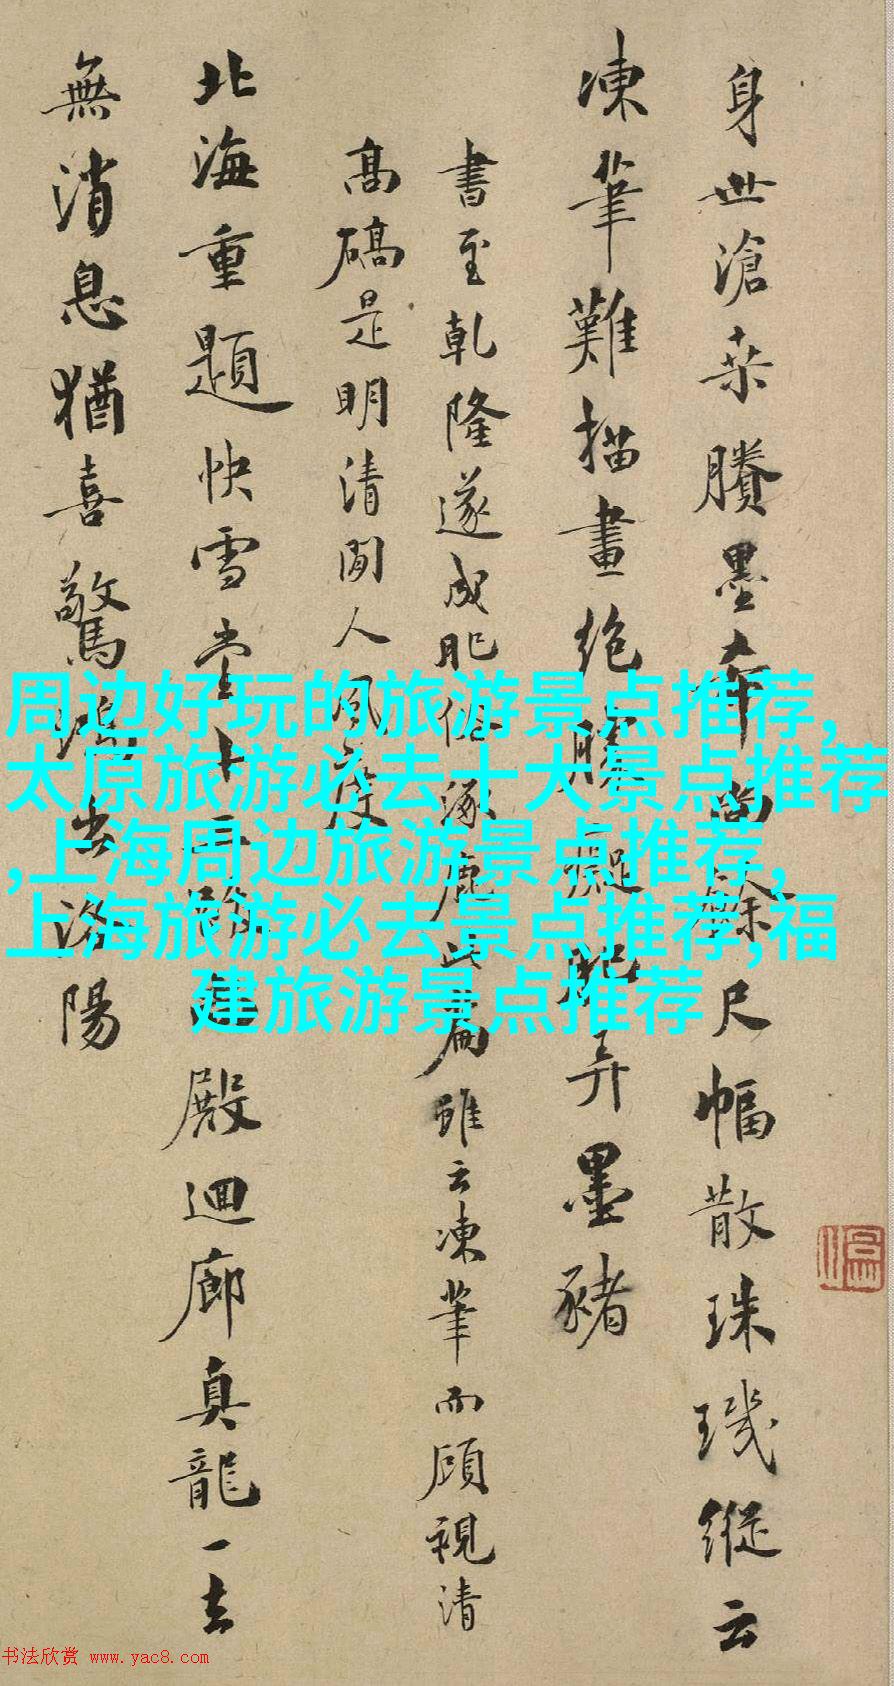 身世滄桑賸墨
尺幅散珠璣縱云
凍筆難描畫絶
弄墨豬
書至乾隆遂成肥俗
雖云凍筆而顧視清
高碻是明清間人風度
北海重題快雪堂十
殿迴廊真龍一去
無消息猶喜驚鴻出洛陽
周边好玩的旅游景点推荐,
太原旅游必去十大景点推荐
,上海周边旅游景点推荐,
上海旅游必去景点推荐,福
建旅游景点推荐
书法欣赏 www.yac8.com